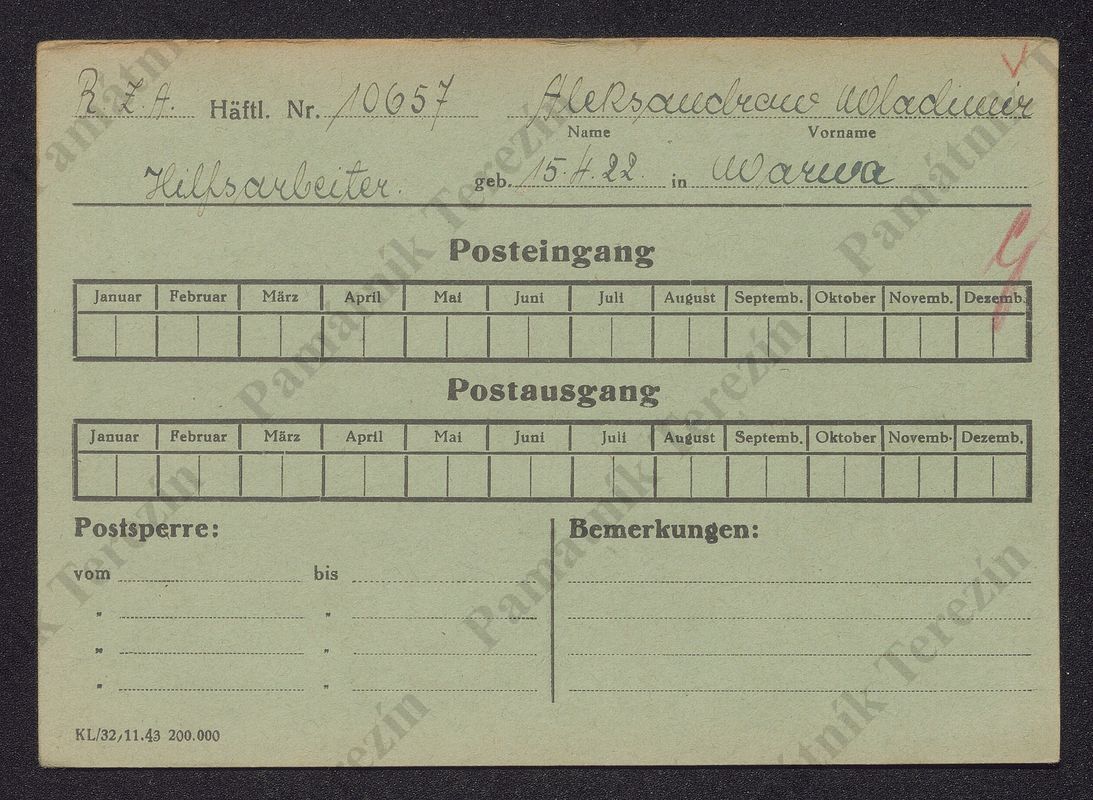 R. Z. A. Häftl. Nr. 10657 Aleksandrow Wladimir
Name Vorname
Hilfsarbeiter. geb. 15.4.22. in Warwa
Posteingang
Januar Februar März April Mai Juni Juli August Septemb. Oktober Novemb. Dezemb.
Postausgang
Januar Februar März April Mai Juni Juli August Septemb. Oktober Novemb. Dezemb.
Postsperre: Bemerkungen:
vom bis
" "
" "
" "
KL/32/11.43 200.000
Památník Terezín